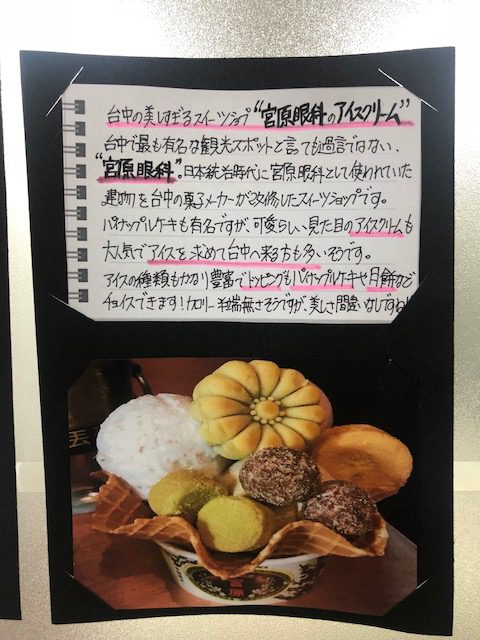 台中の美しすぎるスイーツショップ“宮原眼科のアイスクリーム”
台中で最も有名な観光スポットと言っても過言ではない、
“宮原眼科”。日本統治時代に宮原眼科として使われていた
建物を台中の菓子メーカーが改修したスイーツショップです。
パイナップルケーキも有名ですが、可愛らしい見た目のアイスクリームも
大人気でアイスを求めて台中へ来る方も多いそうです。
アイスの種類もかなり豊富でトッピングもパイナップルケーキや月餅など
チョイスできます！カロリー半端無さそうですが、美しさ間違いなしですね！